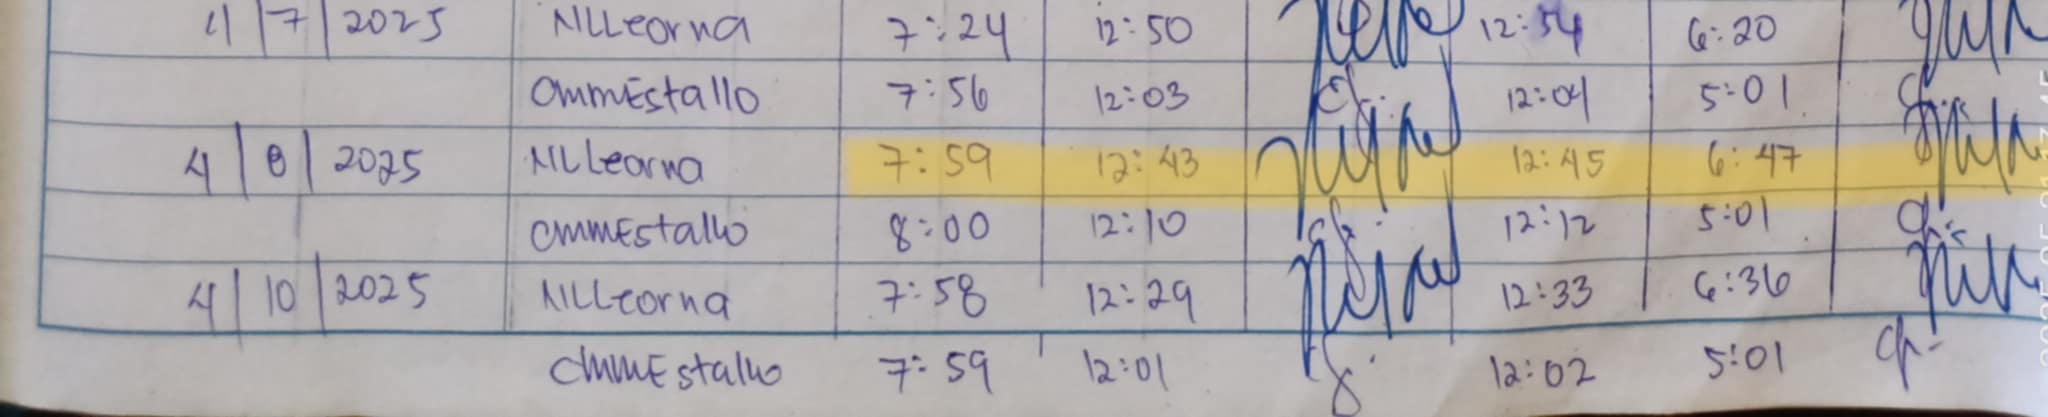 4/7/2025 NLLeorna 7:24 12:50 12:54 6:20
CMMEstallo 7:56 12:03 12:04 5:01
4/8/2025 NLLeorna 7:59 12:43 12:45 6:47
CMMEstallo 8:00 12:10 12:12 5:01
4/10/2025 NLLeorna 7:58 12:29 12:33 6:36
CMMEstallo 7:59 12:01 12:02 5:01